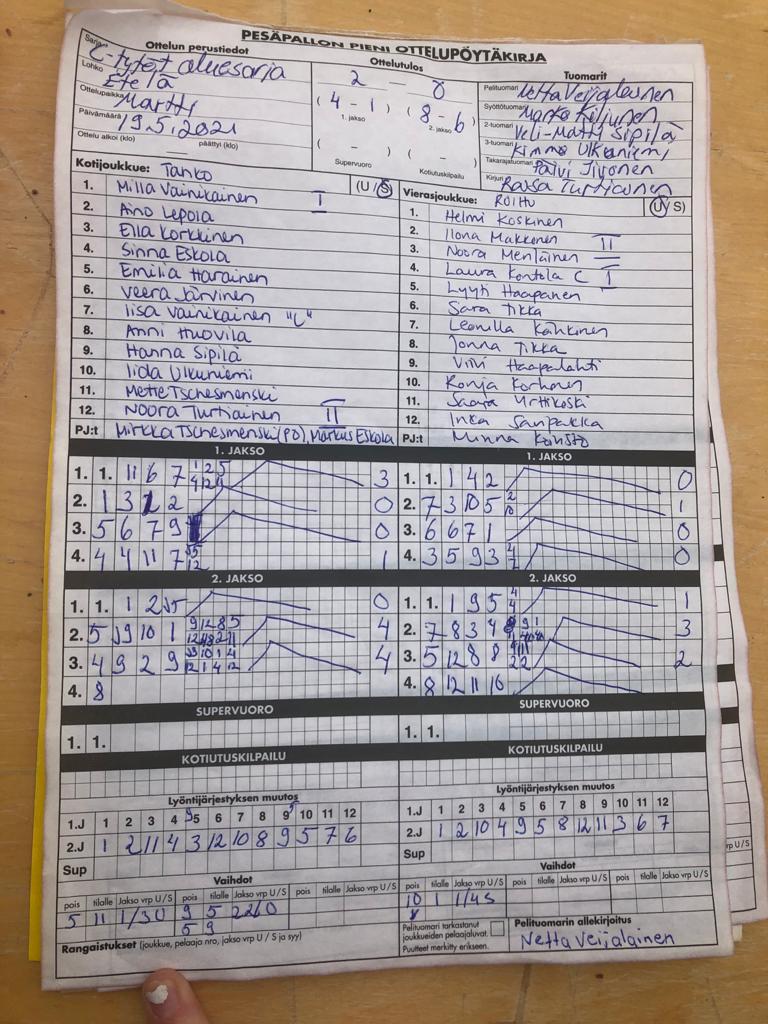 PESÄPALLON PIENI OTTELUPÖYTÄKIRJA
Ottelun perustiedot
Sarja C-tytöt aluesarja
Lohko Etelä
Ottelupaikka Martti
Päivämäärä 19.5.2021
Ottelu alkoi (klo) päättyi (klo)
Ottelutulos
2 - 0
(4 - 1) (8 - 6)
1. jakso 2. jakso
( - ) ( - )
Supervuoro Kotiutuskilpailu
Tuomarit
Pelituomari Netta Veijalainen
Syöttötuomari Marko Kiljunen
2-tuomari Veli-Matti Sipilä
3-tuomari Kimmo Ulkuniemi
Takarajatuomari Päivi Jivonen
Kirjuri Raisa Turtiainen
Kotijoukkue: Tahko (U/S)
1. Milla Vainikainen I
2. Aino Lepola
3. Ella Korkkinen
4. Sinna Eskola
5. Emilia Harainen
6. Veera Järvinen
7. Iisa Vainikainen "C"
8. Anni Huovila
9. Hanna Sipilä
10. Iida Ulkuniemi
11. Mette Tschesmenski
12. Noora Turtiainen II
PJ:t Mirkka Tschesmenski (PJ), Markus Eskola
Vierasjoukkue: ROIHU (U/S)
1. Helmi Koskinen
2. Ilona Makkonen II
3. Noora Menläinen
4. Laura Kontola C I
5. Lyyti Haapanen
6. Sara Tikka
7. Leonilla Kähkinen
8. Jonna Tikka
9. Viivi Haapalahti
10. Ronja Korhonen
11. Saaja Yrttikoski
12. Inka Sanpakka
PJ:t Minna Koivisto
1. JAKSO
1. 1. 11 6 7 3
2. 1 3 2 0
3. 5 6 7 9 0
4. 4 4 11 7 1
1. JAKSO
1. 1. 1 4 2 0
2. 7 3 10 5 1
3. 6 6 7 1 0
4. 3 5 9 3 0
2. JAKSO
1. 1. 1 2 0
2. 5 9 10 1 4
3. 4 9 2 9 4
4. 8
2. JAKSO
1. 1. 1 9 5 1
2. 7 8 3 4 3
3. 5 12 8 8 2
4. 8 12 11 16
SUPERVUORO
1. 1.
SUPERVUORO
1. 1.
KOTIUTUSKILPAILU
KOTIUTUSKILPAILU
Lyöntijärjestyksen muutos
1.J 1 2 3 4 5 6 7 8 9 10 11 12
2.J 1 2 11 4 3 12 10 8 9 5 7 6
Sup
Lyöntijärjestyksen muutos
1.J 1 2 3 4 5 6 7 8 9 10 11 12
2.J 1 2 10 4 9 5 8 12 11 3 6 7
Sup
Vaihdot
pois tilalle Jakso vrp U/S pois tilalle Jakso vrp U/S pois tilalle Jakso vrp U/S
5 11 1/3U 9 5
5 9
Rangaistukset (joukkue, pelaaja nro, jakso vrp U / S ja syy)
Vaihdot
pois tilalle Jakso vrp U/S pois tilalle Jakso vrp U/S pois tilalle Jakso vrp U/S
10 1 1/4S
Pelituomari tarkastanut joukkueiden pelaajaluvat.
Puutteet merkitty erikseen.
Pelituomarin allekirjoitus
Netta Veijalainen